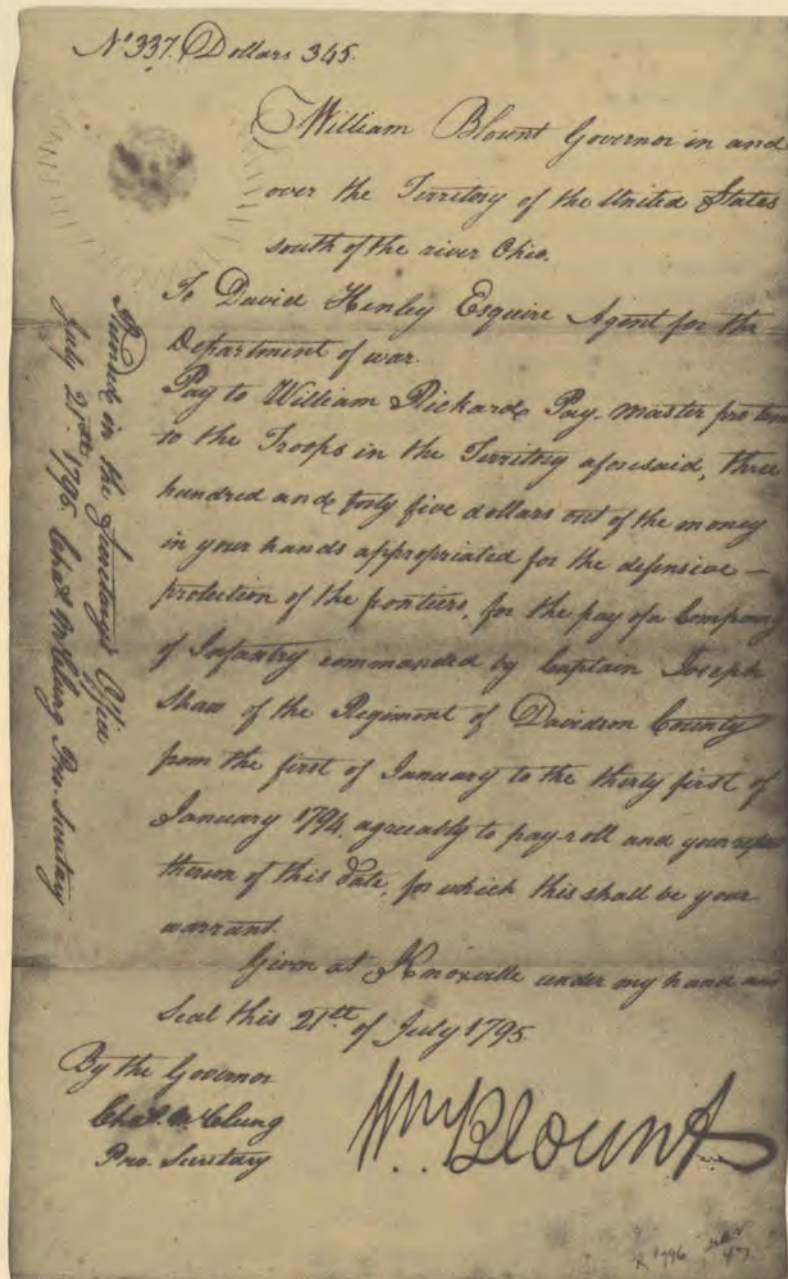 No 337. Dollars 345.
William Blount Governor in and
over the Territory of the United States
south of the river Ohio.
To David Henley Esquire Agent for the
Department of war.
Pay to William Rickard Pay-master pro tem
to the Troops in the Territory aforesaid, three
hundred and forty five dollars out of the money
in your hands appropriated for the defensive —
protection of the frontiers, for the pay of a Company
of Infantry commanded by Captain Joseph
Shaw of the Regiment of Davidson County
from the first of January to the thirty first of
January 1794, agreeably to pay-roll and your
thereon of this date, for which this shall be your
warrant.
Given at Knoxville under my hand and
Seal this 21st of July 1795
By the Governor
Chas. McClung
Pro. Secretary
Wm Blount
in the Secretary's Office
July 21st. 1795. Chas McClung Pro. Secretary
1796
47